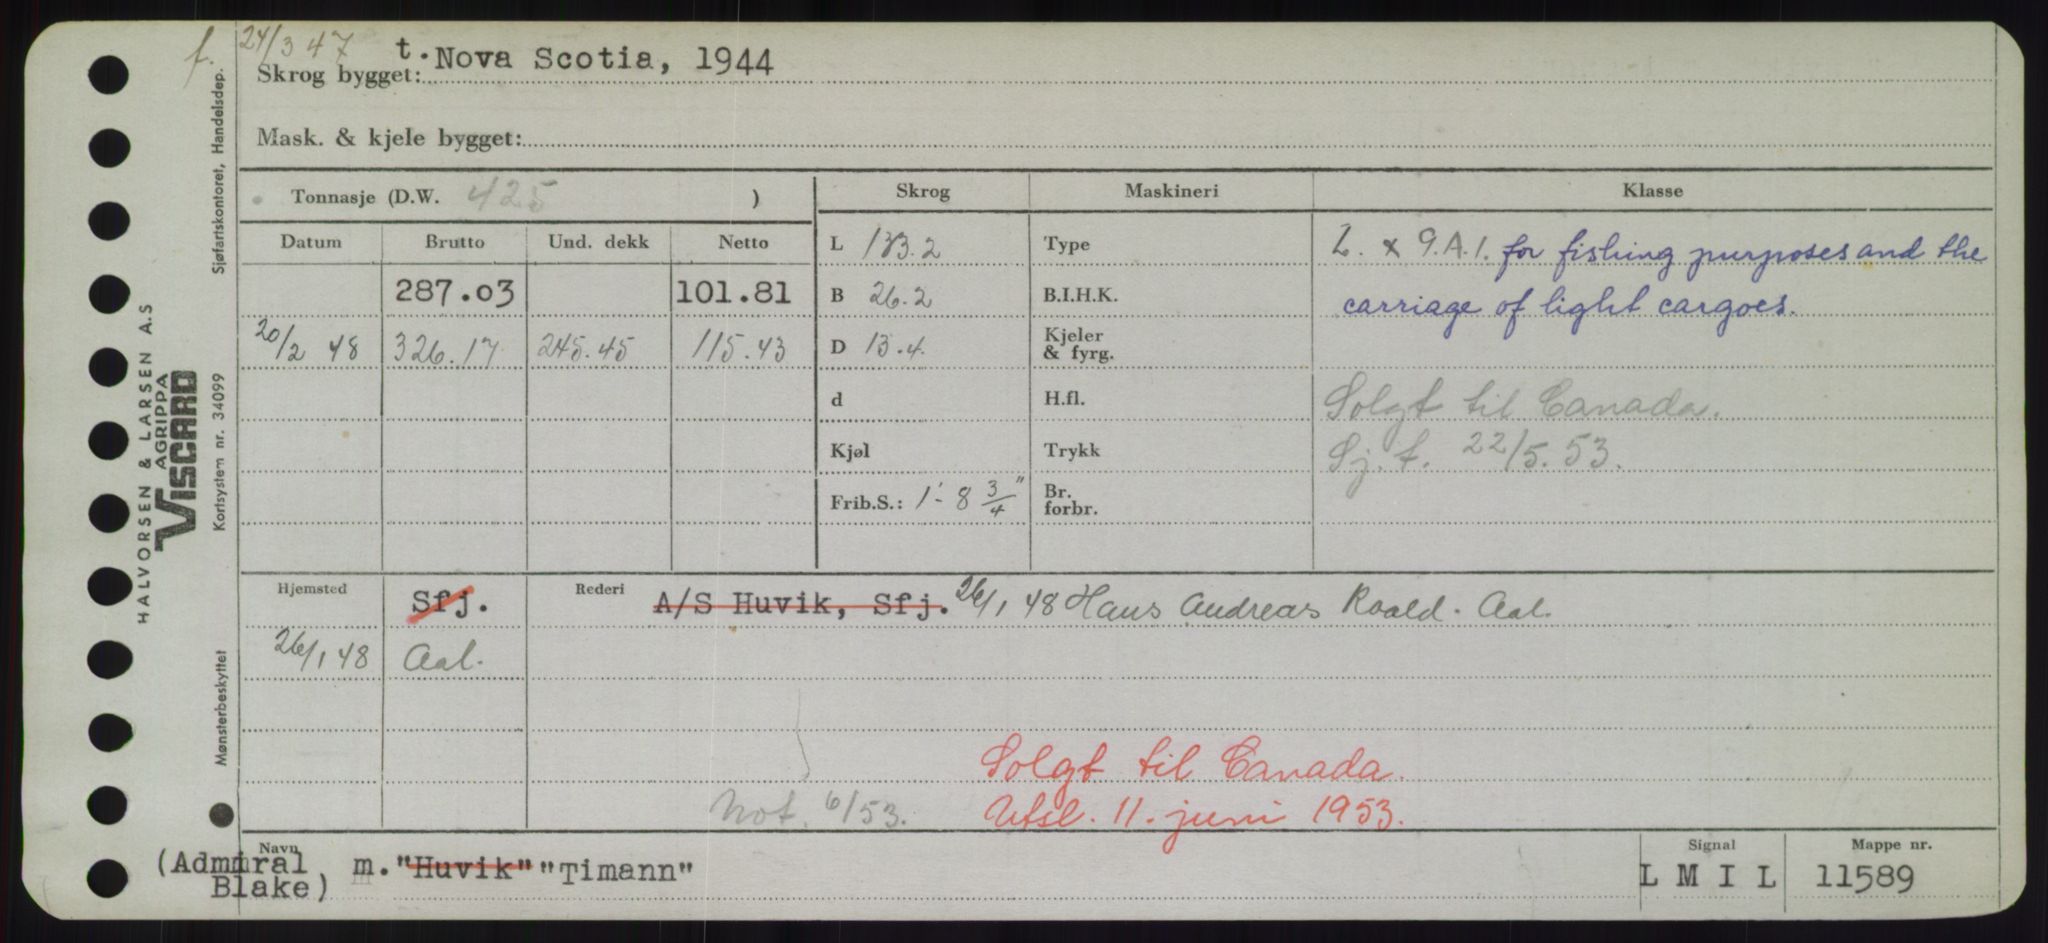 f. 24/3 47
Skrog bygget: t. Nova Scotia, 1944
Mask. & kjele bygget:
Tonnasje (D.W. 425 )
Datum Brutto Und. dekk Netto
287.03 101.81
20/2 48 326.17 245.45 115.43
Skrog Maskineri Klasse
L 133.2 Type
B 26.2 B.I.H.K.
D 13.4. Kjeler & fyrg.
d H.fl.
Kjøl Trykk
Frib.S.: 1'- 8 3/4" Br. forbr.
L. x 9.A.1. for fishing purposes and the
carriage of light cargoes.
Solgt til Canada.
Sj. f. 22/5. 53.
Hjemsted Sfj. Rederi A/S Huvik, Sfj. 26/1 48 Hans Andreas Roald. Aal.
26/1 48 Aal.
Solgt til Canada.
Not. 6/53. Utsl. 11. juni 1953.
Navn Signal Mappe nr.
(Admiral Blake) m. "Huvik" "Timann" L M I L 11589
Sjøfartskontoret, Handelsdep.
Kortsystem nr. 34099
Mønsterbeskyttet
HALVORSEN & LARSEN A.S
AGRIPPA
VISCARD